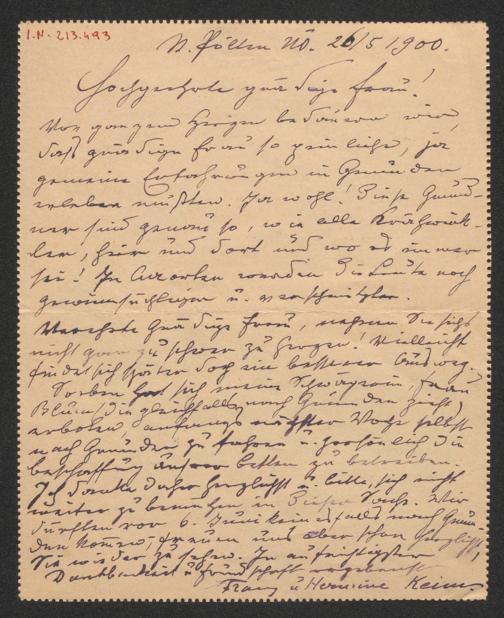 I.N. 213.493
St. Pölten NÖ. 26/5 1900.
Hochgeehrte gnädige Frau!
Von ganzem Herzen bedauern wir,
daß gnädige Frau so peinliche, ja
gemeine Erfahrungen in Gmunden
erleben mußten. Ja wohl! Diese Gmund-
ner sind genau so, wie alle Krähwink-
ler, hier und dort und wo es immer
sei! In Curorten werden die Leute noch
gewinnsüchtiger u. verschmitzter.
Verehrte gnädige Frau, nehmen Sie sichs
nicht gar zu schwer zu Herzen! Vielleicht
findet sich später doch ein besserer Ausweg.
Soeben hat sich meine Schwägerin, Frau
Blüm, die gleichfalls nach Gmunden zieht,
erboten, anfangs nächster Woche selbst
nach Gmunden zu fahren u. persönlich die
Beschaffung unserer Betten zu betreiben.
Ich danke daher herzlichst u. bitte, sich nicht
weiter zu bemühen in dieser Sache. Wir
dürften vor 6. Juni keinesfalls nach Gmun-
den kommen, freuen uns aber schon herzlichst,
Sie wieder zu sehen. In aufrichtigster
Dankbarkeit u. Freundschaft ergebenst
Franz u Hermine Keim.